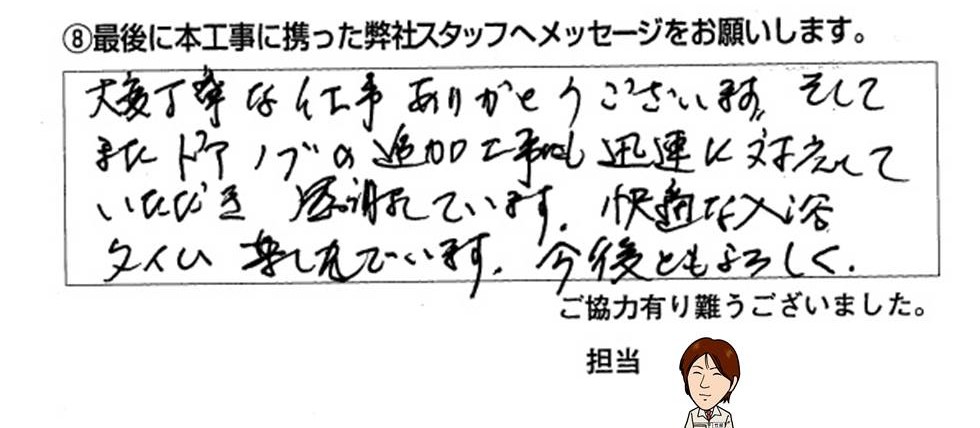 ⑧最後に本工事に携った弊社スタッフへメッセージをお願いします。
大変丁寧な仕事ありがとうございます。そして
またドアノブの追加工事にも迅速に対応して
いただき 感謝しています。快適な入浴
タイム 楽しんでいます。今後ともよろしく.
ご協力有り難うございました。
担当